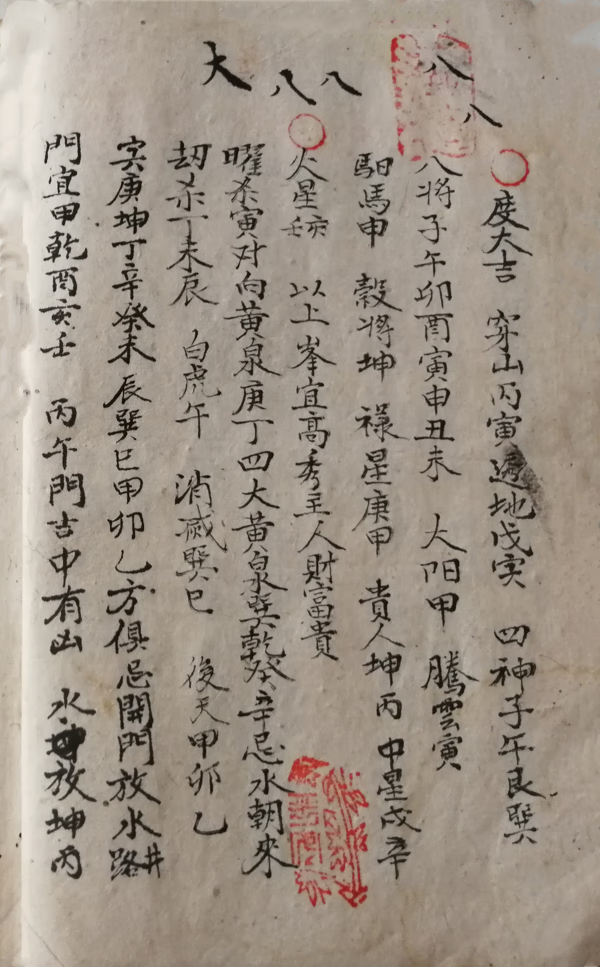 八八 八八 大
度大吉 穿山丙寅 地戊寅 四神子午艮巽
八将子午卯酉寅申丑未 大阳甲 騰雲寅
馹馬申 穀将坤 禄星庚甲 貴人坤丙 中星戌辛
火星壬亥 以上峯宜高秀主人財富貴
曜杀寅对向黄泉庚丁四大黄泉巽乾癸辛忌水朝来
劫杀丁未辰 白虎午 消滅巽巳 後天甲卯乙
寅庚坤丁辛癸未辰巽巳甲卯乙方俱忌開門放水路井
門宜甲乾酉亥壬 丙午門吉中有凶 水放坤丙